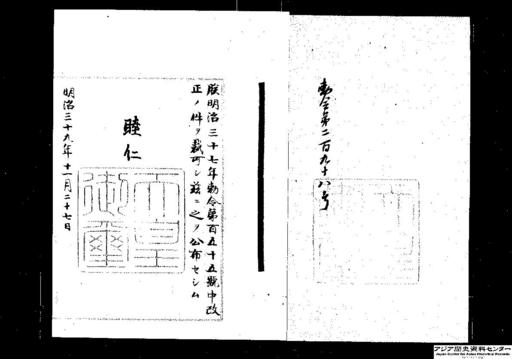 勅令第二百九十八号
朕明治三十七年勅令第百五十五號中改
正ノ件ヲ裁可シ茲ニ之ヲ公布セシム
睦仁
天皇
御璽
明治三十九年十一月二十七日
アジア歴史資料センター
Japan Center for Asian Historical Records